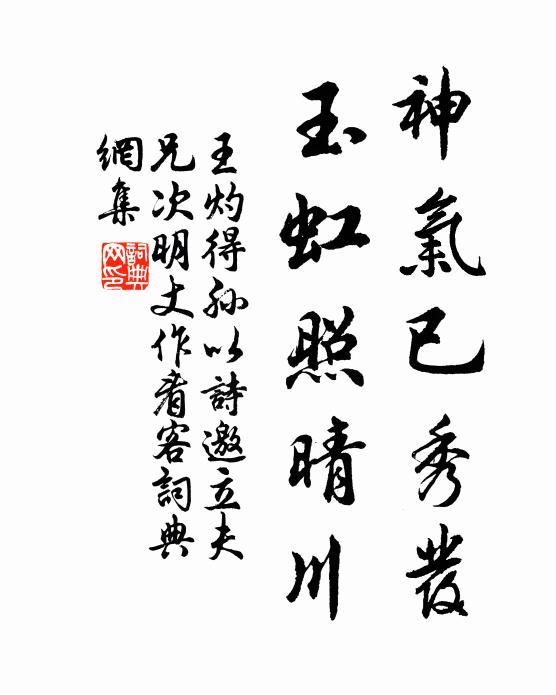 神氣已秀發
玉虹照晴川
王灼得孙以詩邀立夫
兄次明丈作肴客詞典
網集
詞典
网印